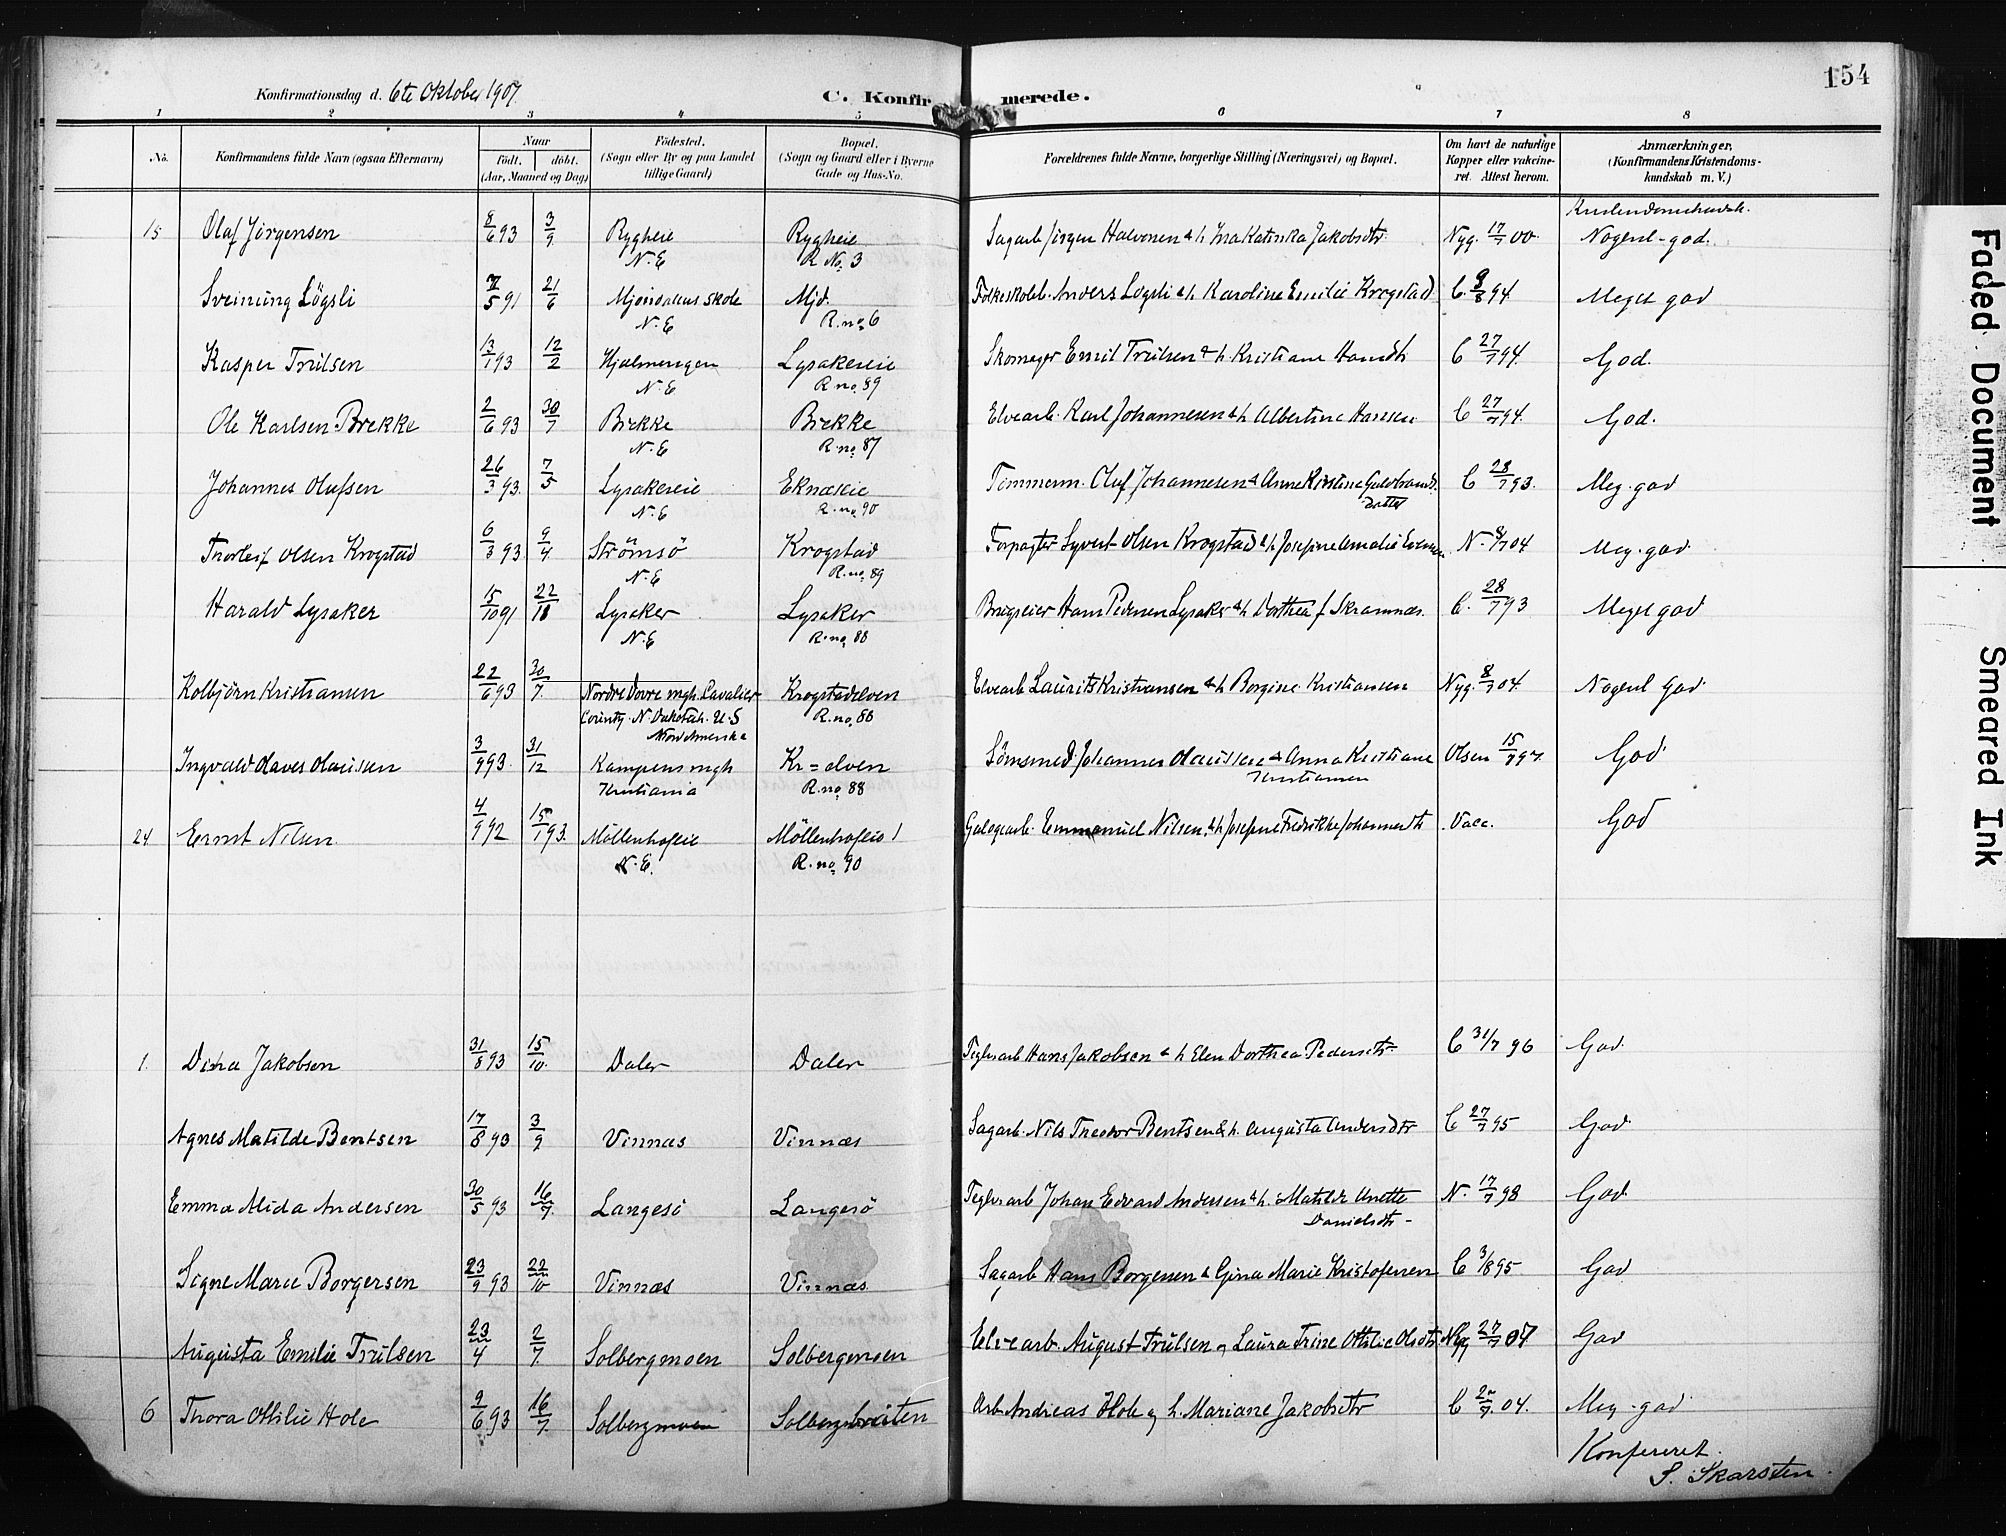 154
Konfirmationsdag d. 6te Oktober 1907.
C. Konfirmerede.
1 2 3 4 5 6 7 8
No. Konfirmandens fulde Navn (ogsaa Efternavn) Naar födt. döbt. (Aar, Maaned og Dag) Födested. (Sogn eller By og paa Landet tillige Gaard) Bopæl. (Sogn og Gaard eller i Byerne Gade og Hus-No. Forældrenes fulde Navne, borgerlige Stilling (Næringsvei) og Bopæl. Om havt de naturlige Kopper eller vakcineret. Attest herom. Anmærkninger. (Konfirmandens Kristendomskundskab m. V.)
15 Olaf Jörgensen 8/6 93 3/9 Rygheie Rygheie Sagarb Jörgen Halvorsen & h. Ina Katinka Jakobsdtr. Nyg. 17/7 00. Nogenl-god.
N.E R No. 3
Sveinung Lögsli 7/5 91 21/6 Mjöndalens skole Mjd. Folkeskolel. Anders Logsli & h Karoline Emilie Krogstad C. 9/8 94 Meget god
N.E R.no. 6
Kasper Trulsen 13/1 93 12/2 Hjalmengen Lysakereie Skomager Emil Trulsen & h. Kristiane Hansdtr C 27/7 94. God.
N.E R no. 89
Ole Karlsen Brekke 2/6 93 30/7 Brekke Brekke Elvearb. Karl Johannesen & h Albertine Hansen C 27/7 94. God.
N.E R.no. 87
Johannes Olufsen 26/3 93. 7/5 Lysakereie Eknæseie Tömmerm. Oluf Johannesen & Anne Kristine Guldbrands C 28/7 93. Meg. god
N.E R.no. 90 datter
Thorleif Olsen Krogstad 6/3 93 9/4 Strömsö Krogstad Forpagter Syvert Olsen Krogstad & h Josefine Amalie N. 8/7 04 Meg. god
N.E R.no. 89
Harald Lysaker 15/10 91 22/18 Lysaker Lysaker Brugseier Hans Pedersen Lysaker & h. Dorthea f. Skramnæs. C. 28/7 93 Meget god
N.E R.no. 88
Kolbjörn Kristiansen 22/6 93 30/7. Nordre Dovre mgh. Cavalier Krogstadelven Elvearb Laurits Kristiansen & h Borgine Kristiansen Nyg. 8/7 04. Nogenl God
County. N. Dakotah. U.S R.no. 88
Nordamerika
Ingvald Olaves Olausen 3/9 93. 31/12 Kampens mgh Kr=elven Johannes Olaussen & Anna Kristiane Olsen 15/7 97. God
Kristiania R.no. 88 Kristiansen
24 Ernst Nilsen. 4/9 92 15/1 93. Möllenhofeie Möllenhofeie Emmanuel Nilsen. & h Josefine Fredrikke Johannesdtr Vacc. God
N.E. R.no. 90
1. Dina Jakobsen 31/8 93 15/10. Daler Daler Teglv.arb Hans Jakobsen & h Elen Dorthea Pedersdtr. C 31/7 96 God.
Agnes Matilde Bentsen 17/8 93 3/9 Vinnæs Vinnæs Sagarb. Nils Theodor Bentsen & h. Augusta Andersdtr C 27/7 95 God.
Emma Alida Andersen 30/5 93 16/7. Langesö Langesö Teglv.arb Johan Edvard Andersen & h. Matilde Anette N. 17/7 98 God.
Danielsdtr-
Signe Marie Borgersen 23/9 93 22/10 Vinnæs Vinnæs. Sagarb Hans Borgersen & Gina Marie Kristofersen C 3/8 95 God
Augusta Emilie Trulsen 23/4 2/7. Solbergmoen Solbergmoen Elvearb. August Trulsen og Laura Trine Ottilie Olsdtr. Nyg 27/7 07 God
6 Thora Ottilie Hole 9/6 93 16/7. Solbergmoen Solbergbråten Arb Andreas Hole og h. Mariane Jakobsdtr C 04. Meg-god
Konfereret.
S. Skarsten.
Faded Document
Smeared Ink